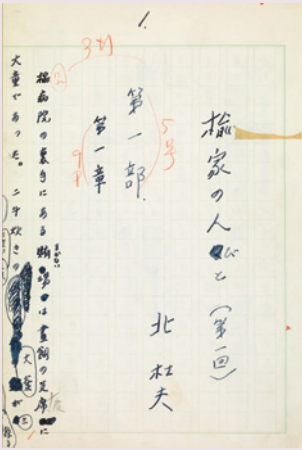 1.
楡家の人びと（第一回）
北杜夫
第一部.
5号
第一章
楡病院の裏手にある賄場は昼餉の支度に
大童であった。二斗炊きの
大釜
が